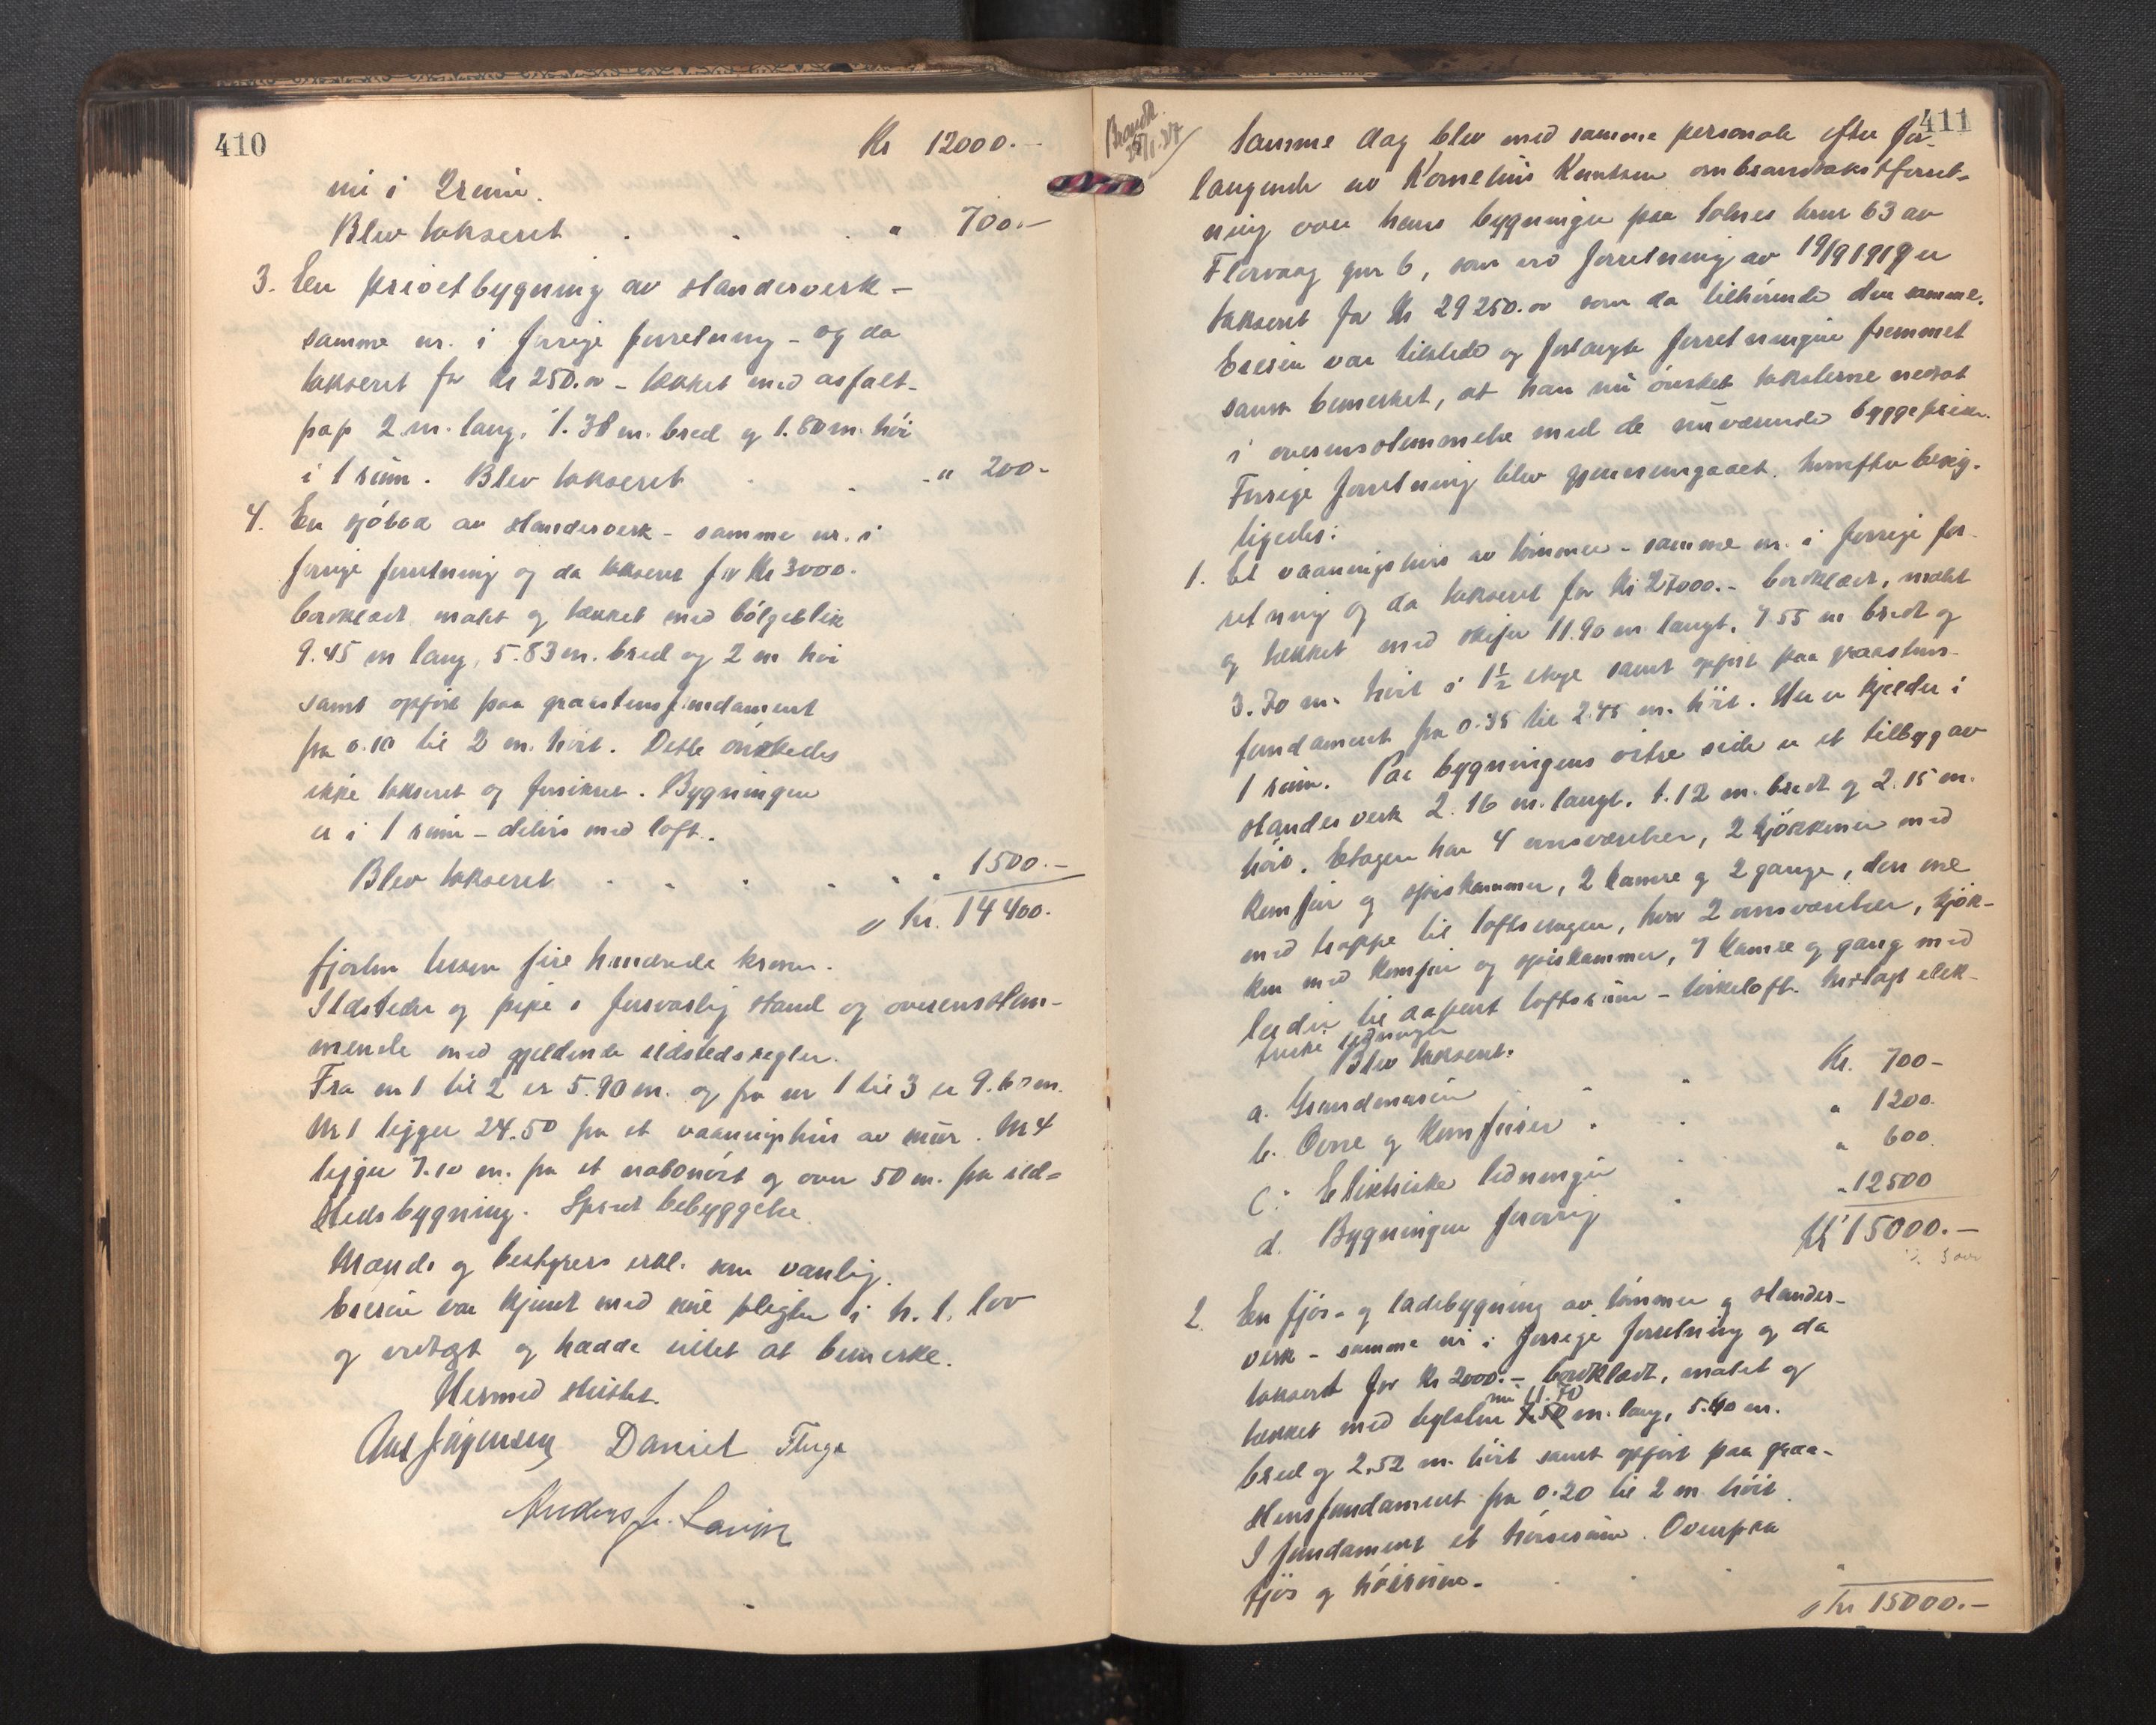 410
Kr 12000.-
nu i 2 rum.
Blev takseret . . . " 700.-
3. En privetbygning av standerverk -
samme nr. i forrige forretning - og da
takseret for Kr 250.00 - tækket med asfalt-
pap 2 m. lang, 1.38 m. bred og 1.80 m. høi
i 1 rum. Blev takseret . . . " 200-
4. En sjöbod av standerverk - samme nr. i
forrige forretning og da takseret for Kr 3000.
bordklædt malet og tækket med bölgeblik
9.45 m lang, 5.83 m. bred og 2 m høi
samt opfört paa graastensfundament
fra 0.10 til 2 m. höit. Dette önskedes
ikke takseret og forsikret. Bygningen
er i 1 rum - delvis med loft.
Blev takseret . . . . " " 1500.-
Kr. 14400.
fjorten tusen fire hundrede kroner.
Ildsteder og pipe i forsvarlig stand og overensstem-
mende med gjeldende ildstedsregler.
Fra nr 1 til 2 er 5.90 m. og fra nr 1 til 3 er 9.60 m.
Nr 1 ligger 24.50 fra et vaaningshus av mur. Nr 4
ligger 7.10 m. fra et nabonöst og over 50 m. fra ild-
stedsbygning. Spredt bebyggelse.
Mænds og bestyrers erkl. som vanlig.
Eieren var kjent med sine pligter i h. t. lov
og vedtægt og hadde intet at bemerke.
Hermed sluttet.
Ant Jörgensen Daniel Fluge
Anders J. Lavik
Brandt.
25/1.37
411
Samme dag blev med samme personale efter for-
langende av Kornelius Knutsen om brandtakstforret-
ning over hans bygninger paa Solnes bnr 63 av
Florvaag gnr 6, som ved forretning av 19/9 1919 er
takseret for Kr 29250.00 som da tilhörende den samme.
Eieren var tilstede og forlangte forretningen fremmet
samt bemerket, at han nu önsket taksterne nedsat
i overensstemmelse med de nuværende byggepriser.
Forrige forretning blev gjennemgaaet. hvorefter besig-
tigedes:
1. Et vaaningshus av tömmer - samme nr. i forrige for-
retning og da takseret for Kr 27000.- bordklædt, malet
og tækket med skifer 11.90 m langt, 7.55 m bredt og
3.70 m. höit i 1½ etage samt opfört paa graastens-
fundament fra 0.35 til 2.45 m. höit. Her er kjelder i
1 rum. Paa bygningens östre side er et tilbygg av
standerverk 2.16 m. langt, 1.12 m. bredt og 2.15 m.
höit. Etagen har 4 annsværelser, 2 kjökkener med
komfur og spiskammer, 2 kamre og 2 gange, den ene
med trappe til loftsetagen, hvor 2 annsværelser, kjök-
ken med komfur og spiskammer, 1 kamre og gang med
leider til aapent loftsrum - törkeloft. Indlagt elek-
triske ledninger
Blev takseret:
a. Grundmuren . . Kr. 700-
b. Ovne og komfurer . . " 1200.
c. Elektriske ledninger . . " 600.
d. Bygningen forövrig . " 12500
Kr 15000.-
2. En fjös- og ladebygning av tömmer og stander-
verk - samme nr i forrige forretning og da
takseret for Kr 2000.- bordklædt, malet og
tækket med teglsten nu 11.70 m. lang, 5.40 m.
bred og 2.52 m. höit samt opfört paa graa-
stensfundament fra 0.20 til 2 m. höit.
I fundament et hönserum. Ovenpaa
fjös og höirum.
Kr 15000.-